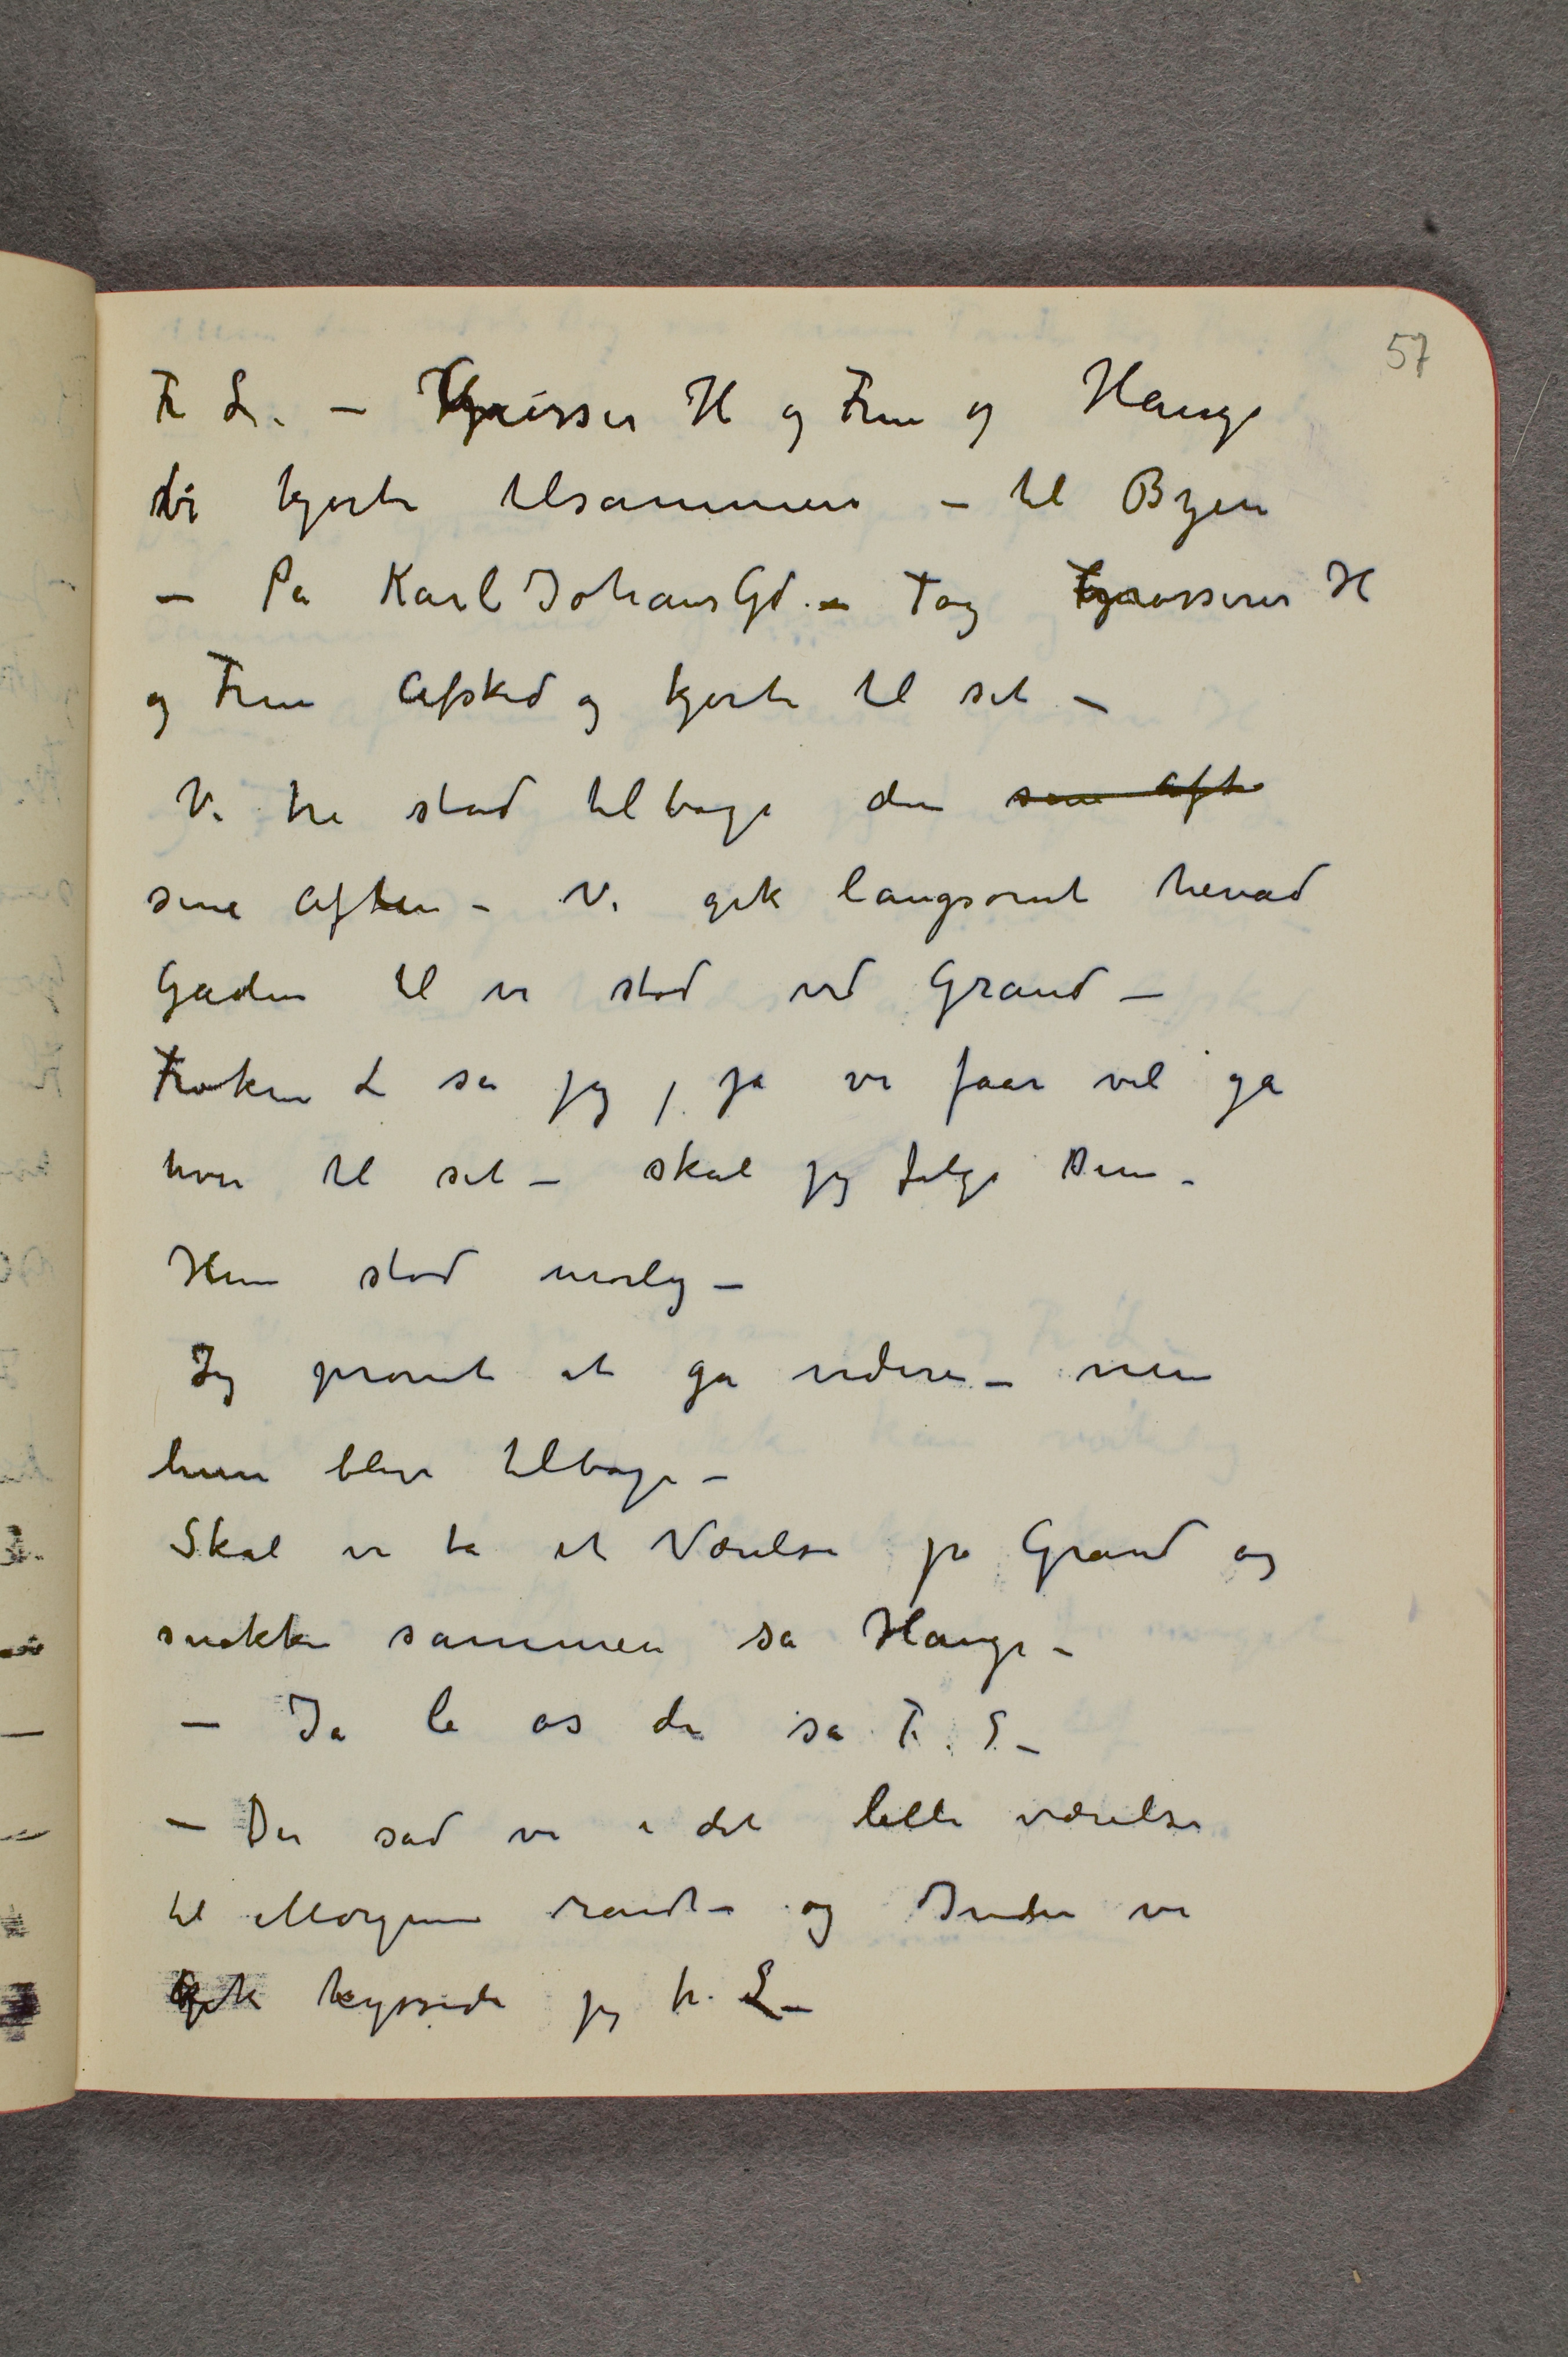 57
Fr L. – Grosser H og Frue og Hauge
vi kjørte tilsammen – til Byen
– På Karl Johans Gd. – Tog Grosserer H
og Frue Afsked og kjørte til sit –
Vi tre stod tilbage den sene Afte
sene Aften – Vi gik langsomt henad
Gaden til vi stod ved Grand –
Frøken L sa jeg, ja vi faar vel gå
hver til sit – skal jeg følge Dem –
Hun stod urolig –
Jeg prøvet at gå videre – men
hun blev tilbage –
Skal vi ta et Værelse på Grand og
snakke sammen sa Hauge –
– Ja la os de sa F. L –
– Der sad vi i det lille værelse
til Morgenen randt – og Inden vi
gik kyssede jeg fr. L –